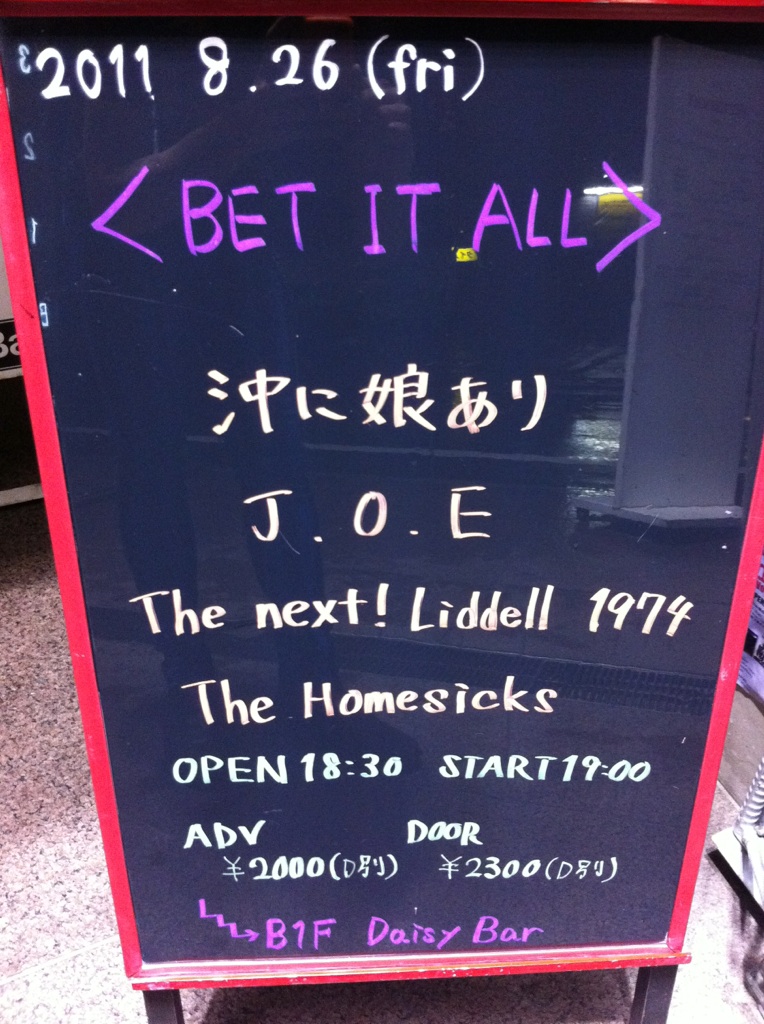 2011 8.26 (fri)
<BET IT ALL>
沖に娘あり
J.O.E
The next! Liddell 1974
The Homesicks
OPEN 18:30 START 19:00
ADV DOOR
¥2000(D別) ¥2300(D別)
B1F Daisy Bar